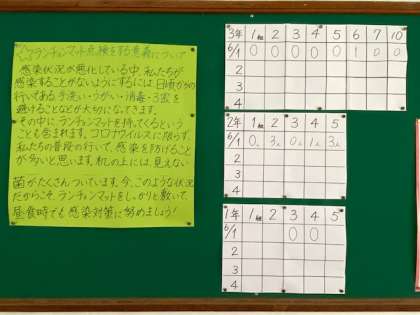 ランチョンマット点検をする意義について
感染状況が悪化している中、私たちが
感染することがないようにするには、日頃からの
行いである手洗い・うがい・消毒・3密を
避けることなどが大切になってきます。
その中にランチョンマットを持ってくるという
ことも含まれます。コロナウイルスに限らず、
私たちの普段の行いで、感染を防げること
が多いと思います。机の上には、見えない
菌がたくさんついています。今、このような状況
だからこそ、ランチョンマットをしっかりと敷いて、
昼食時でも感染対策に努めましょう!
3年 1組 2 3 4 5 6 7 10
6/1 0 0 0 0 0 1 0 0
2
3
4
2年 1組 2 3 4 5
6/1 0人 3人 0人 1人 3人
2
3
4
1年 1組 2 3 4 5
6/1 0 0
2
3
4